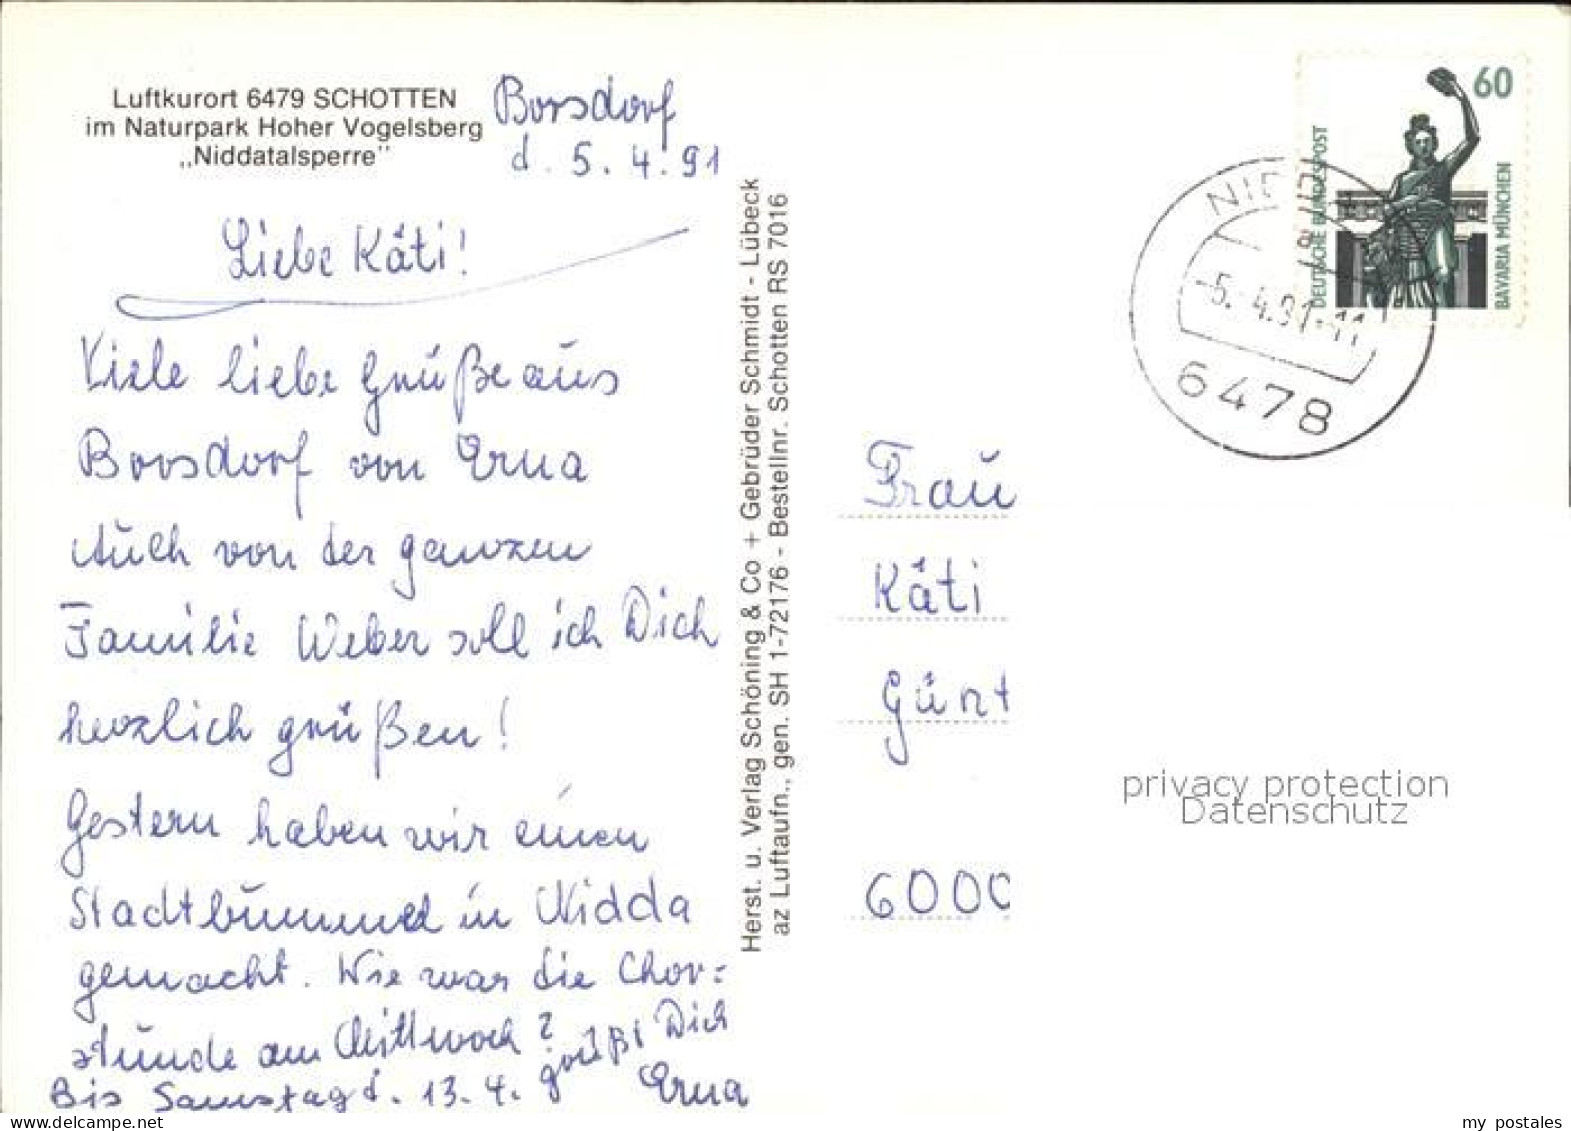 Luftkurort 6479 SCHOTTEN
im Naturpark Hoher Vogelsberg
„Niddatalsperre"
Borsdorf
d. 5. 4. 91
Liebe Käti!
Viele liebe Grüße aus
Borsdorf von Erna
Auch von der ganzen
Familie Weber soll ich Dich
herzlich grüßen!
Gestern haben wir einen
Stadtbummel in Nidda
gemacht. Wie war die Chor=
stunde am Mittwoch?
Bis Samstag d. 13. 4. grüßt Dich
Erna
Herst. u. Verlag Schöning & Co + Gebrüder Schmidt - Lübeck
az Luftaufn., gen. SH 1-72176 - Bestellnr. Schotten RS 7016
60
DEUTSCHE BUNDESPOST
BAVARIA MÜNCHEN
-5.-4.91-11
6478
Frau
Käti
Günt
6000
privacy protection
Datenschutz
my postales